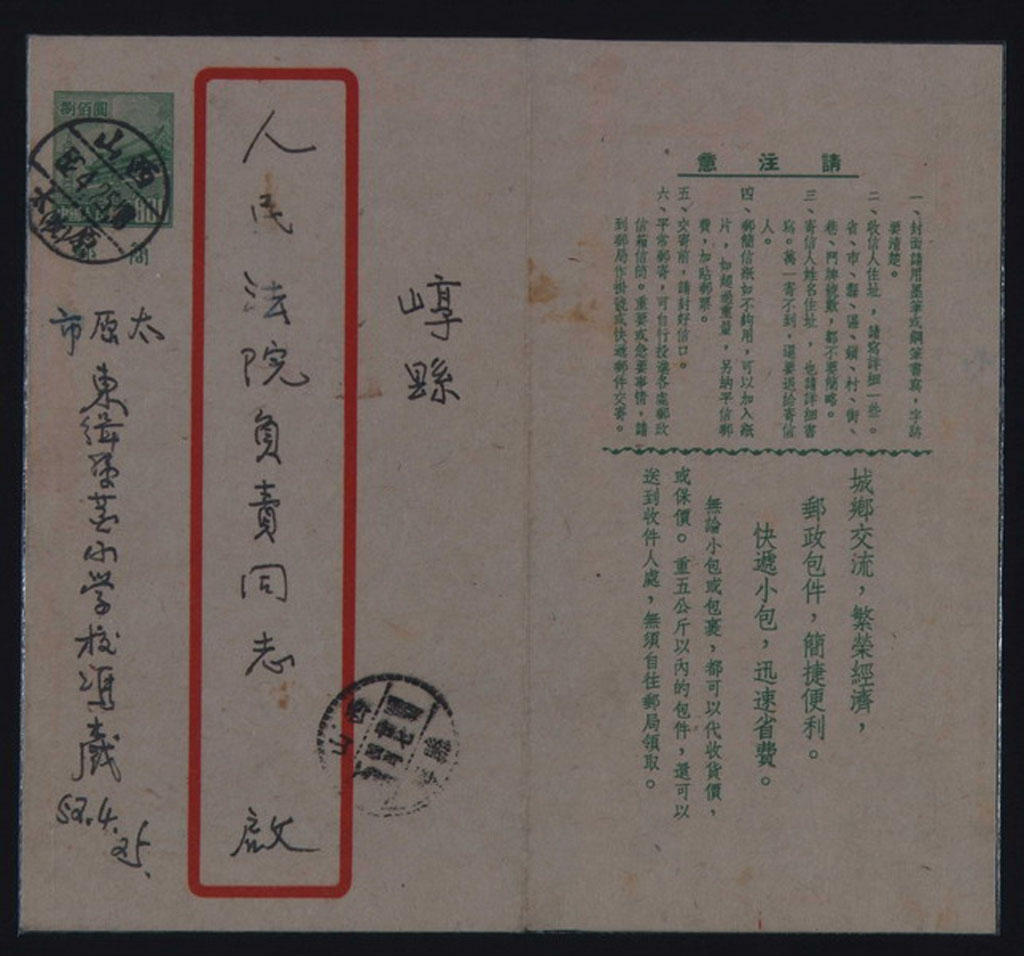 請注意
一、封面請用墨筆或鋼筆書寫，字跡
要清楚。
二、收信人住址，請寫詳細一些。
省、市、縣、區、鎮、村、街、
巷、門牌號數，都不要簡略。
三、寄信人姓名住址，也請詳細書
寫。萬一寄不到，還要退給寄信
人。
四、郵簡信紙如不夠用，可以加入紙
片，如超過重量，另納平信郵
費，加貼郵票。
五、交寄前，請封好信口。
六、平常郵寄，可自行投進各處郵政
信箱信筒。重要或急要事情，請
到郵局作掛號或快遞郵件交寄。
城鄉交流，繁榮經濟，
郵政包件，簡捷便利。
快遞小包，迅速省費。
無論小包或包裹，都可以代收貨價，
或保價。重五公斤以內的包件，還可以
送到收件人處，無須自往郵局領取。
崞縣
人民法院負責同志 啟
太原市
東緝虎营小学校馮歲
52.4.25.
捌佰圓
山西
山西